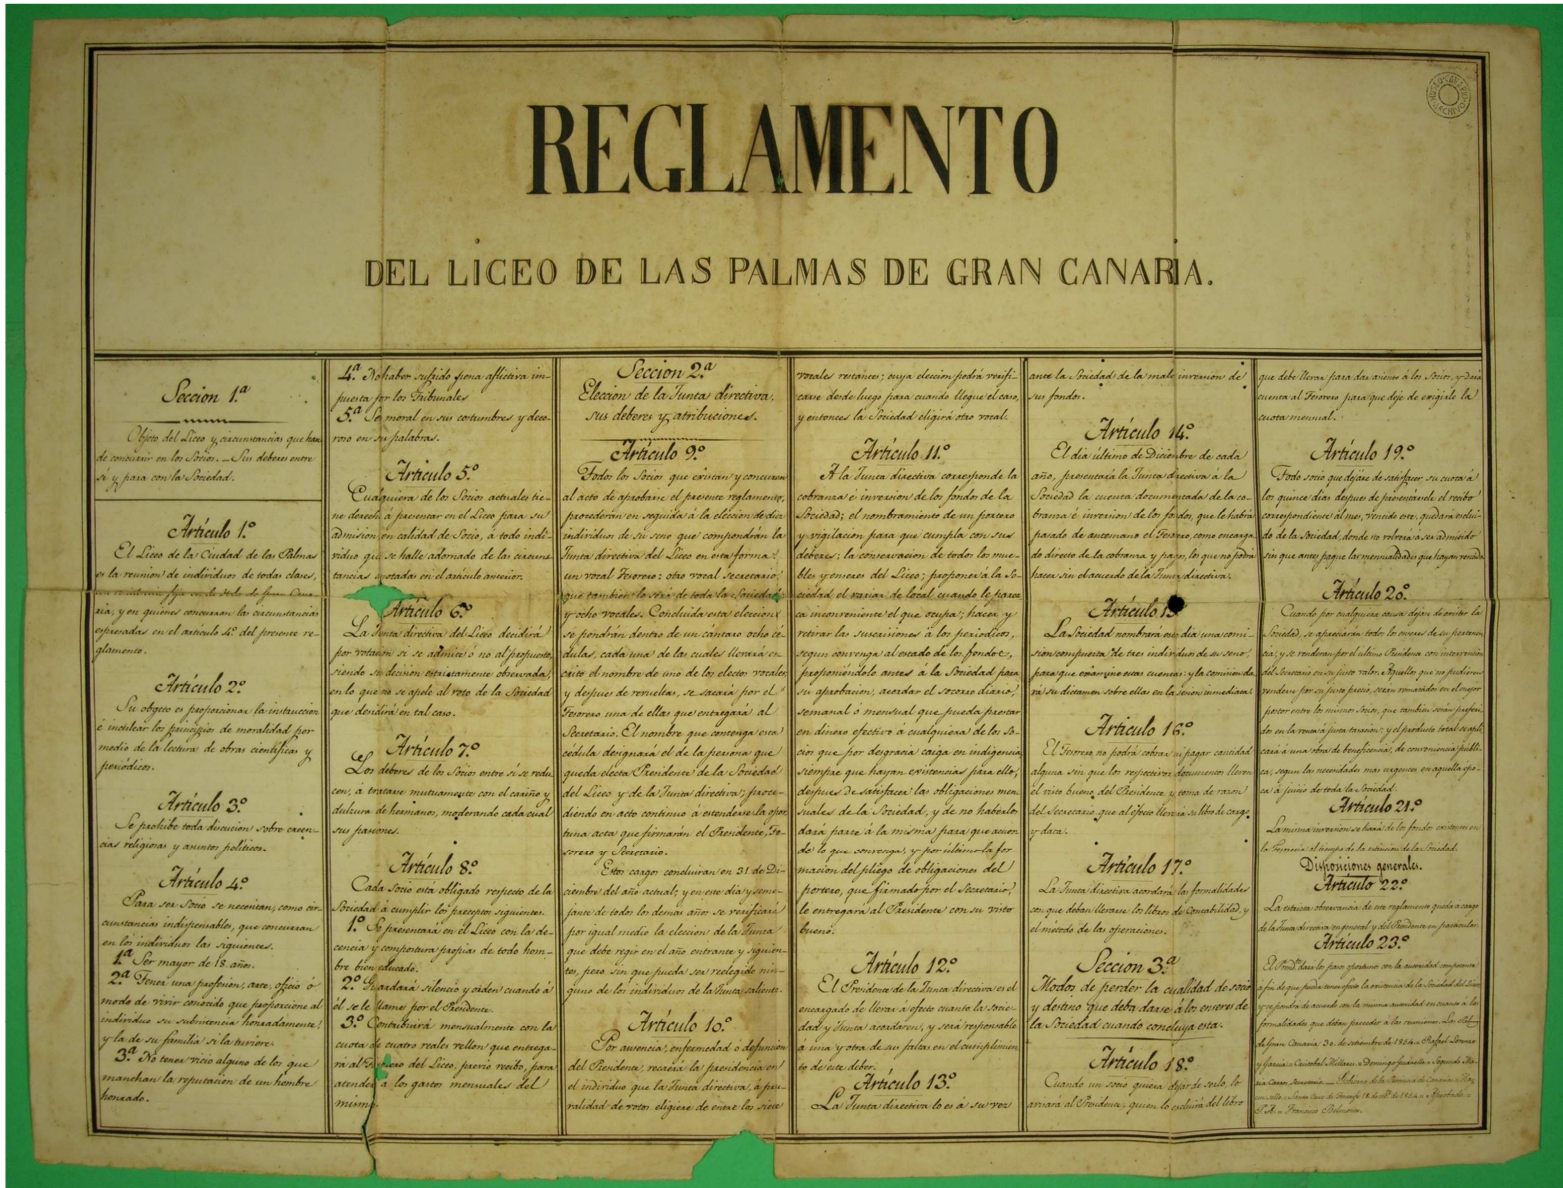 REGLAMENTO
DEL LICEO DE LAS PALMAS DE GRAN CANARIA.
Seccion 1.ª
Objeto del Liceo y circunstancias que han
de concurrir en los Socios. — Sus deberes entre
sí y para con la Sociedad.
Artículo 1.º
El Liceo de la Ciudad de las Palmas
es la reunion de individuos de todas clases,
con residencia fija en de Gran Cana-
ria, y en quienes concurran las circunstancias
espresadas en el artículo 4.º del presente re-
glamento.
Artículo 2.º
Su obgeto es proporcionar la instruccion
é inculcar los principios de moralidad por
medio de la lectura de obras científicas y
periódicos.
Artículo 3.º
Se prohibe toda discusion sobre creen-
cias religiosas y asuntos políticos.
Artículo 4.º
Para ser Socio se necesitan, como cir-
cunstancias indispensables, que concurran
en los individuos las siguientes.
1.ª Ser mayor de 18 años.
2.ª Tener una profesion, arte, oficio ó
modo de vivir conocido que proporcione al
individuo su subsistencia honradamente,
y la de su familia si la tuviere.
3.ª No tener vicio alguno de los que
manchan la reputacion de un hombre
honrado.
4.ª No haber sufrido pena aflictiva im-
puesta por los Tribunales
5.ª Ser moral en sus costumbres y deco-
roso en su palabras.
Artículo 5.º
Cualquiera de los Socios actuales tie-
ne derecho á presentar en el Liceo para su
admision en calidad de Socio, á todo indi-
viduo que se halle adornado de las circuns-
tancias anotadas en el artículo anterior.
Artículo 6.º
La Junta directiva del Liceo decidirá
por votacion si se admite ó no al propuesto,
siendo su decision estrictamente observada,
en lo que no se apele al voto de la Sociedad
que decidirá en tal caso.
Artículo 7.º
Los deberes de los Socios entre sí se redu-
cen, á tratarse mutuamente con el cariño y
dulzura de hermanos, moderando cada cual
sus pasiones.
Artículo 8.º
Cada Socio está obligado respecto de la
Sociedad á cumplir los preceptos siguientes.
1.º Se presentará en el Liceo con la de-
cencia y compostura propias de todo hom-
bre bien educado.
2.º Guardará silencio y orden cuando á
él se le llame por el Presidente.
3.º Contribuirá mensualmente con la
cuota de cuatro reales vellon que entrega-
rá al Tesorero del Liceo, previo recibo, para
atender á los gastos mensuales del
mismo.
Seccion 2.ª
Eleccion de la Junta directiva,
sus deberes y atribuciones.
Artículo 9.º
Todos los Socios que existan y concurran
al acto de aprobarse el presente reglamento,
procederán en seguida á la eleccion de diez
individuos de su seno que compondrán la
Junta directiva del Liceo en esta forma:
un vocal Tesorero; otro vocal Secretario,
que tambien lo será de toda la Sociedad;
y ocho vocales. Concluida esta eleccion
se pondrán dentro de un cántaro ocho cé-
dulas, cada una de las cuales llevará es-
crito el nombre de uno de los electos vocales,
y despues de revueltas, se sacará por el
Tesorero una de ellas que entregará al
Secretario. El nombre que contenga esta
cédula designará el de la persona que
queda electa Presidente de la Sociedad
del Liceo y de la Junta directiva; proce-
diendo en acto continuo á estenderse la opor-
tuna acta que firmarán el Presidente, Te-
sorero y Secretario.
Estos cargos concluiran en 31 de Di-
ciembre del año actual; y en este dia y seme-
jante de todos los demas años se verificará
por igual medio la eleccion de la Junta
que debe regir en el año entrante y siguien-
tes, pero sin que pueda ser reelegido nin-
guno de los individuos de la Junta saliente.
Artículo 10.º
Por ausencia, enfermedad ó defuncion
del Presidente, recaerá la presidencia en
el individuo que la Junta directiva, á plu-
ralidad de votos eligiere de entre los siete
vocales restantes; cuya eleccion podrá verifi-
carse desde luego para cuando llegue el caso,
y entonces la Sociedad eligirá otro vocal.
Artículo 11.º
Á la Junta directiva corresponde la
cobranza é inversion de los fondos de la
Sociedad; el nombramiento de un portero
y vigilacion para que cumpla con sus
deberes; la conservacion de todos los mue-
bles y enseres del Liceo; proponer á la So-
ciedad el variar de local cuando le parez-
ca inconveniente el que ocupa; hacer y
retirar las suscriciones á los periódicos,
segun convenga al estado de los fondos,
proponiéndolo antes á la Sociedad para
su aprobacion, acordar el socorro diario,
semanal ó mensual que pueda prestar
en dinero efectivo á cualquiera de los So-
cios que por desgracia caiga en indigencia
siempre que hayan existencias para ello,
despues de satisfacer las obligaciones men-
suales de la Sociedad, y de no haberlas
dará parte á la misma para que acuer-
de lo que convenga, y por último la for-
macion del pliego de obligaciones del
portero, que firmado por el Secretario,
le entregará al Presidente con su visto
bueno.
Artículo 12.º
El Presidente de la Junta directiva es el
encargado de llevar á efecto cuanto la Socie-
dad y Junta acordaren, y será responsable
á una y otra de sus faltas en el cumplimien-
to de este deber.
Artículo 13.º
La Junta directiva lo es á su vez
ante la Sociedad de la mala inversion de
sus fondos.
Artículo 14.º
El dia último de Diciembre de cada
año, presentará la Junta directiva á la
Sociedad la cuenta documentada de la co-
branza é inversion de los fondos, que le habrá
pasado de antemano el Tesorero, como encarga-
do directo de la cobranza y pagos, los que no podrá
hacer sin el acuerdo de la Junta directiva.
Artículo 15
La Sociedad nombrará ese dia una comi-
sion compuesta de tres individuos de su seno,
para que examine estas cuentas; y la comision da-
rá su dictamen sobre ellas en la sesion inmediata.
Artículo 16.º
El Tesorero no podrá cobrar ni pagar cantidad
alguna sin que los respectivos documentos lleven
el visto bueno del Presidente y toma de razon
del Secretario que al efecto llevará su libro de cargo
y data.
Artículo 17.º
La Junta directiva acordará las formalidades
con que deban llevarse los libros de Contabilidad, y
el método de las operaciones.
Seccion 3.ª
Modos de perder la cualidad de socio
y destino que deba darse á los enseres de
la Sociedad cuando concluya esta.
Artículo 18.º
Cuando un socio quiera dejar de serlo, lo
avisará al Presidente, quien lo escluirá del libro
que debe llevar para dar asiento á los Socios, y dará
cuenta al Tesorero para que deje de exigirle la
cuota mensual.
Artículo 19.º
Todo socio que dejare de satisfacer su cuota á
los quince dias despues de presentársele el recibo
correspondiente al mes, vencido este, quedará escluí-
do de la Sociedad, donde no volverá á ser admitido
sin que antes pague las mensualidades que hayan vencido.
Artículo 20.º
Cuando por cualquier causa dejare de existir la
Sociedad, se apreciarán todos los enseres de su pertenen-
cia; y se venderan por el último Presidente con intervencion
del Secretario en su justo valor. Aquellos que no pudieren
venderse por su justo precio, serán rematados en el mejor
postor entre los mismos Socios, que tambien serán preferi-
dos en la venta á justa tasacion; y el producto total se apli-
cará á una obra de beneficencia, de conveniencia públi-
ca, segun las necesidades mas urgentes en aquella épo-
ca á juicio de toda la Sociedad.
Artículo 21.º
La misma inversion se dará de los fondos existentes en
la Tesorería al tiempo de la estincion de la Sociedad.
Disposiciones generales.
Artículo 22.º
La estricta observancia de este reglamento queda á cargo
de la Junta directiva en general y del Presidente en particular.
Artículo 23.º
El Presid.te dará los pasos oportunos con la autoridad competente
á fin de que pueda tener efecto la existencia del Liceo
y se pondrá de acuerdo con la misma autoridad en cuanto á las
formalidades que deban preceder á las reuniones. Las Pal-
mas de Gran Canaria 30 de setiembre de 1854. = Rafael Lorenzo
y Garcia = Cristobal = Domingo = Segundo Ma-
ria Secretario. — Gobierno de la Provincia de Canarias =
= Santa Cruz de Tenerife 18 de de 1854. = Aprobado =
= Francisco